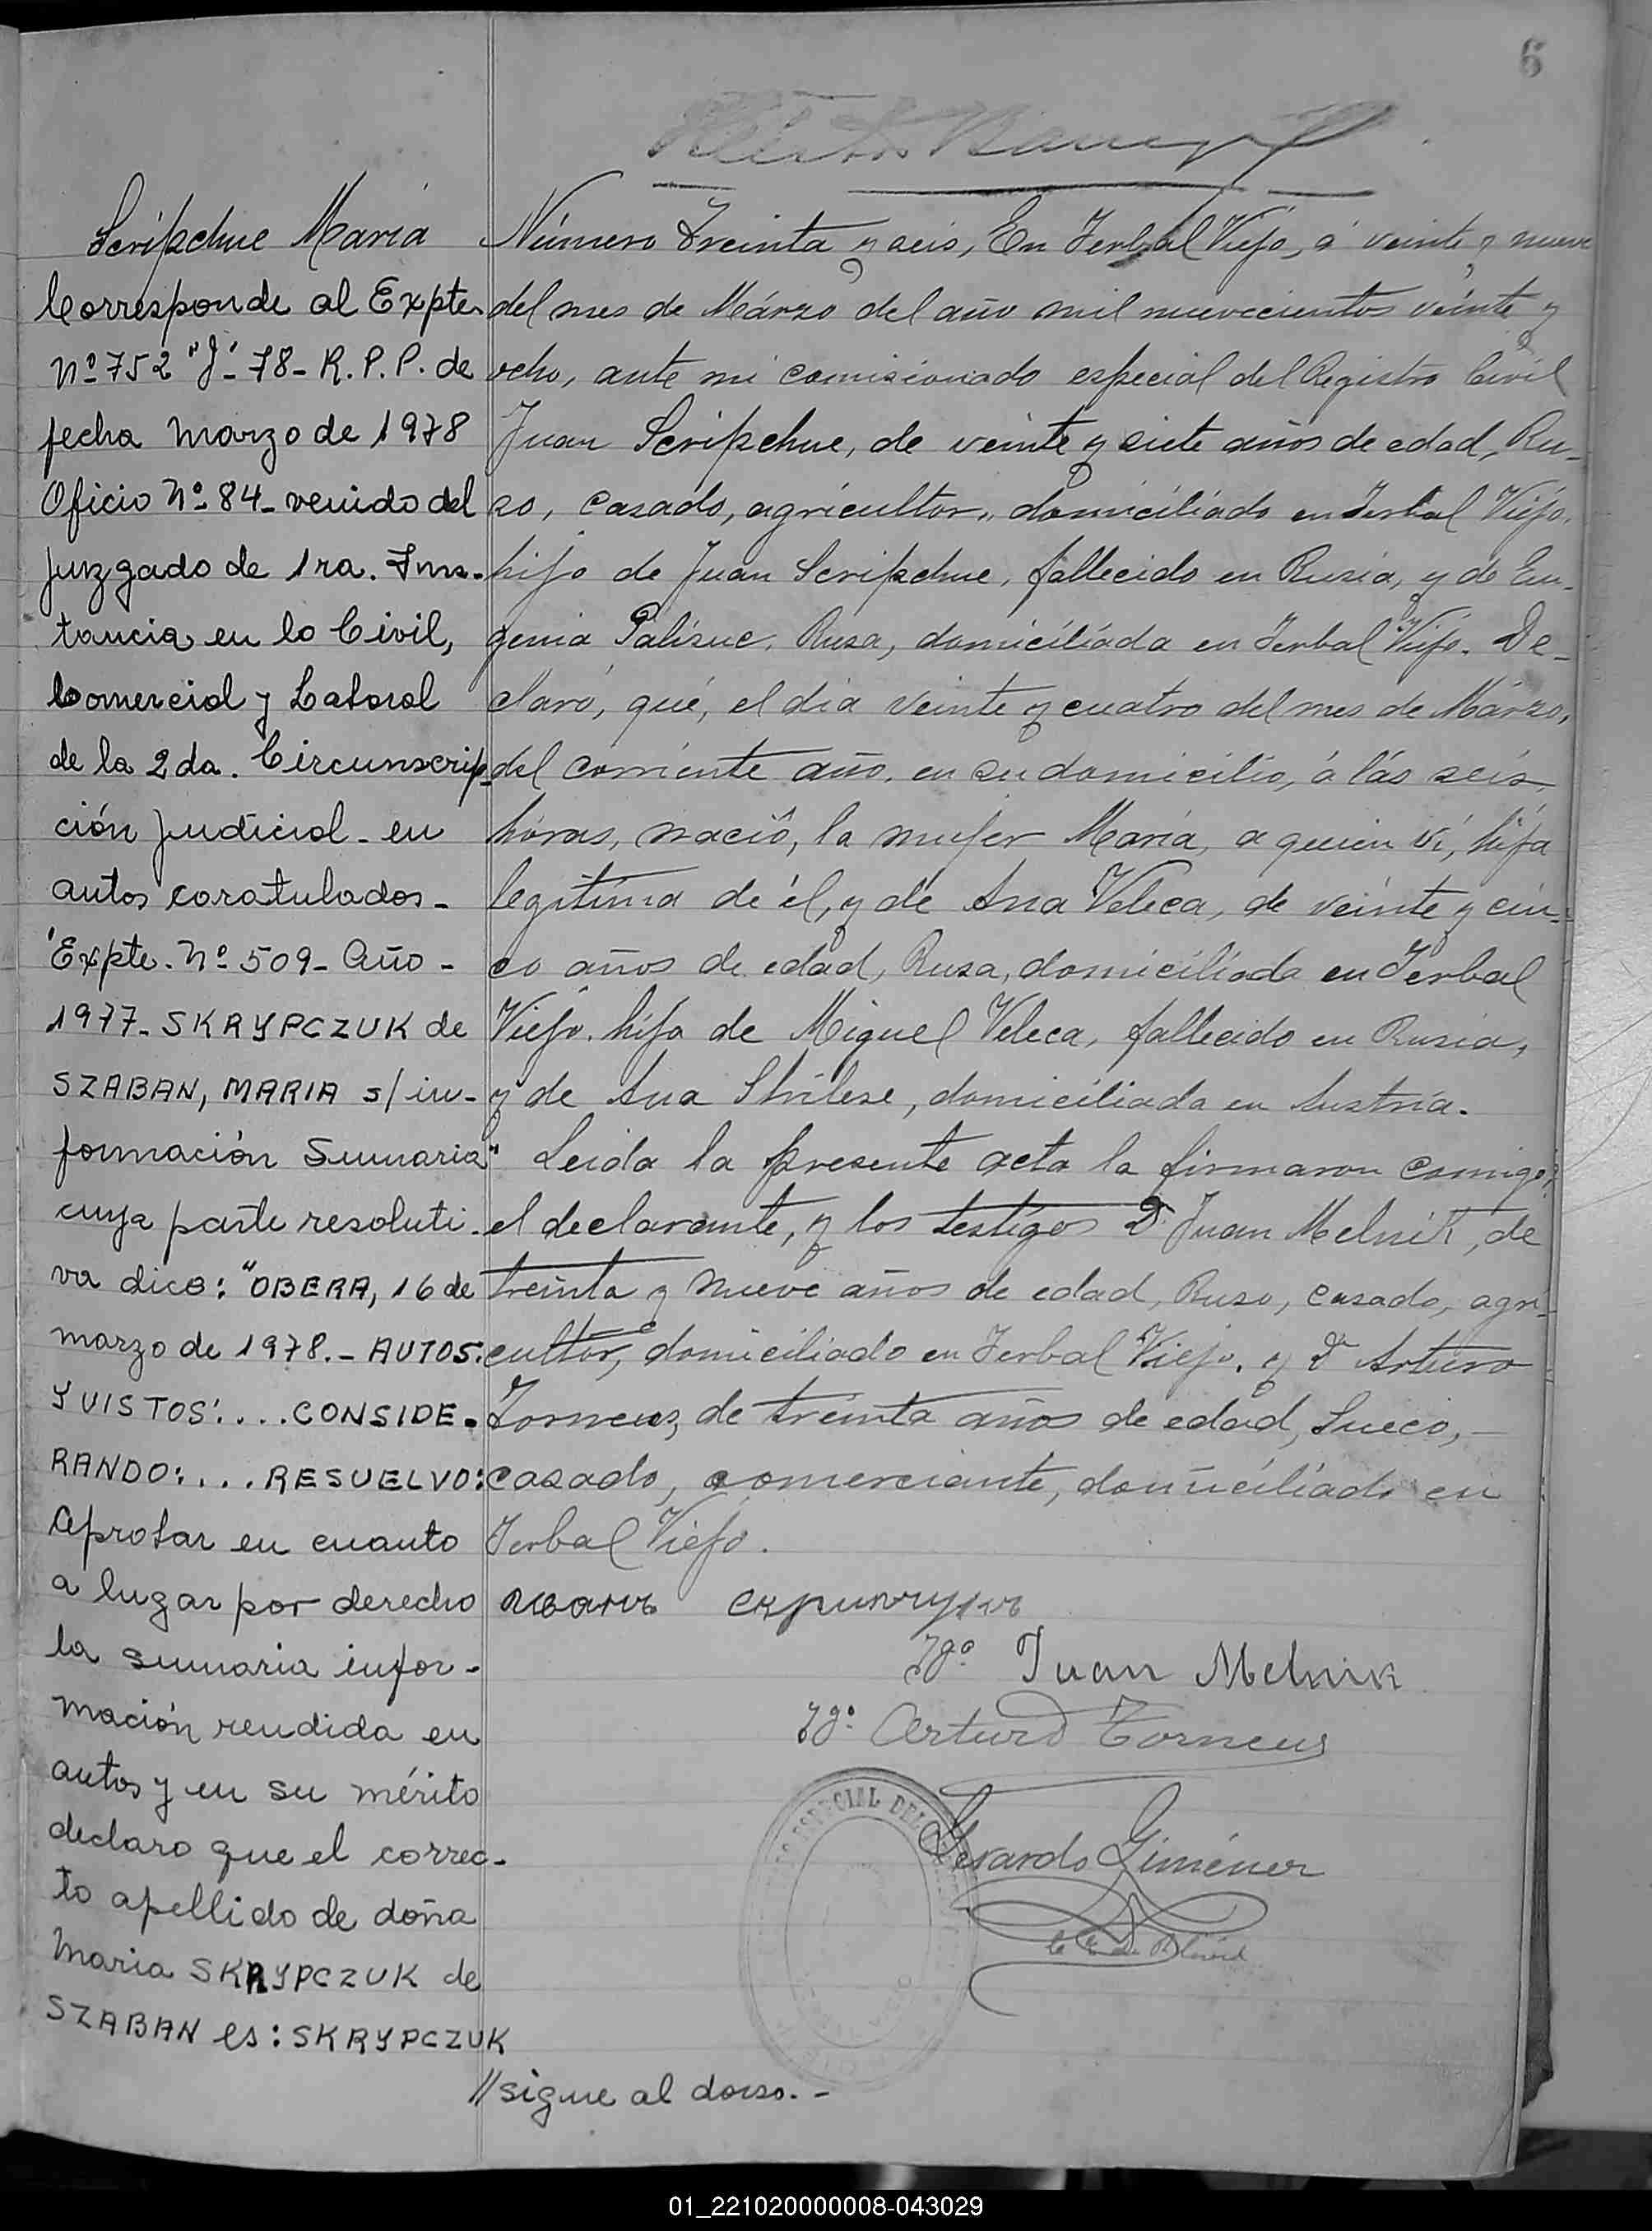 6
Scripchue María
Corresponde al Expte.
Nº 752 "J"- 78- R.P.P. de
fecha marzo de 1978
Oficio Nº 84- venido del
Juzgado de 1ra. Ins-
tancia en lo Civil,
Comercial y Laboral
de la 2da. Circunscrip-
ción Judicial - en
autos caratulados-
"Expte. Nº 509- Año -
1977- SKRYPCZUK de
SZABAN, MARIA s/ in-
formación Sumaria"
cuya parte resoluti-
va dice: "OBERA, 16 de
marzo de 1978.- AUTOS.
Y VISTOS:... CONSIDE-
RANDO:... RESUELVO:
Aprobar en cuanto
a lugar por derecho
la sumaria infor-
mación rendida en
autos y en su mérito
declaro que el correc-
to apellido de doña
Maria SKRYPCZUK de
SZABAN es: SKRYPCZUK
//sigue al dorso.-
Número Treinta y seis, En Yerbal Viejo, á veinte y nueve
del mes de Márzo del año mil nuevecientos veinte y
ocho, ante mi comisionado especial del Registro Civil
Juan Scripchue, de veinte y siete años de edad, Ru-
so, casado, agricultor, domiciliado en Yerbal Viejo,
hijo de Juan Scripchue, fallecido en Rusia, y de Eu-
genia Palisuc, Rusa, domiciliada en Yerbal Viejo. De-
claró, qué, el día veinte y cuatro del mes de Márzo,
del corriente año, en su domicilio, á lás seis
hóras, nació, la mujer María, a quien ví, hija
legítima de él, y de Ana Veleca, de veinte y cin-
co años de edad, Rusa, domiciliada en Yerbal
Viejo. hija de Miguel Veleca, fallecido en Rusia,
y de Ana Strilese, domiciliada en Austria.
Leida la presente acta la firmaron comigo,
el declarante, y los testigos D. Juan Melnik, de
treinta y nueve años de edad, Ruso, casado, agri-
cultor, domiciliado en Yerbal Viejo. y D. Arturo
Torneus, de treinta años de edad, Sueco,-
casado, comerciante, domiciliado en
Yerbal Viejo.
иванъ скрипчукъ
Tgo. Juan Melnik
Tgo. Arturo Torneus
ESPECIAL DEL
Gerardo Giménez
01_221020000008-043029